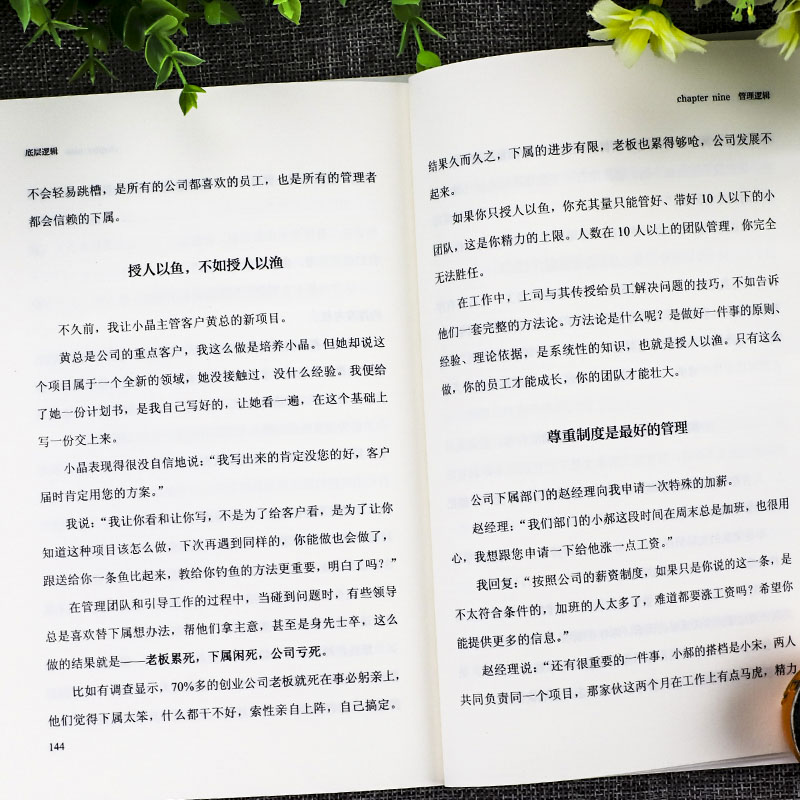 底层逻辑
不会轻易跳槽，是所有的公司都喜欢的员工，也是所有的管理者
都会信赖的下属。
授人以鱼，不如授人以渔
不久前，我让小晶主管客户黄总的新项目。
黄总是公司的重点客户，我这么做是培养小晶。但她却说这
个项目属于一个全新的领域，她没接触过，没什么经验。我便给
了她一份计划书，是我自己写好的，让她看一遍，在这个基础上
写一份交上来。
小晶表现得很没自信地说：“我写出来的肯定没您的好，客户
届时肯定用您的方案。”
我说：“我让你看和让你写，不是为了给客户看，是为了让你
知道这种项目该怎么做，下次再遇到同样的，你能做也会做了，
跟送给你一条鱼比起来，教给你钓鱼的方法更重要，明白了吗？”
在管理团队和引导工作的过程中，当碰到问题时，有些领导
总是喜欢替下属想办法，帮他们拿主意，甚至是身先士卒，这么
做的结果就是——老板累死，下属闲死，公司亏死。
比如有调查显示，70%多的创业公司老板就死在事必躬亲上，
他们觉得下属太笨，什么都干不好，索性亲自上阵，自己搞定。
144
chapter nine 管理逻辑
结果久而久之，下属的进步有限，老板也累得够呛，公司发展不
起来。
如果你只授人以鱼，你充其量只能管好、带好 10 人以下的小
团队，这是你精力的上限。人数在 10 人以上的团队管理，你完全
无法胜任。
在工作中，上司与其传授给员工解决问题的技巧，不如告诉
他们一套完整的方法论。方法论是什么呢？是做好一件事的原则、
经验、理论依据，是系统性的知识，也就是授人以渔。只有这么
做，你的员工才能成长，你的团队才能壮大。
尊重制度是最好的管理
公司下属部门的赵经理向我申请一次特殊的加薪。
赵经理：“我们部门的小郝这段时间在周末总是加班，也很用
心，我想跟您申请一下给他涨一点工资。”
我回复：“按照公司的薪资制度，如果只是你说的这一条，是
不太符合条件的，加班的人太多了，难道都要涨工资吗？希望你
能提供更多的信息。”
赵经理说：“还有很重要的一件事，小郝的搭档是小宋，两人
共同负责同一个项目，那家伙这两个月在工作上有点马虎，精力